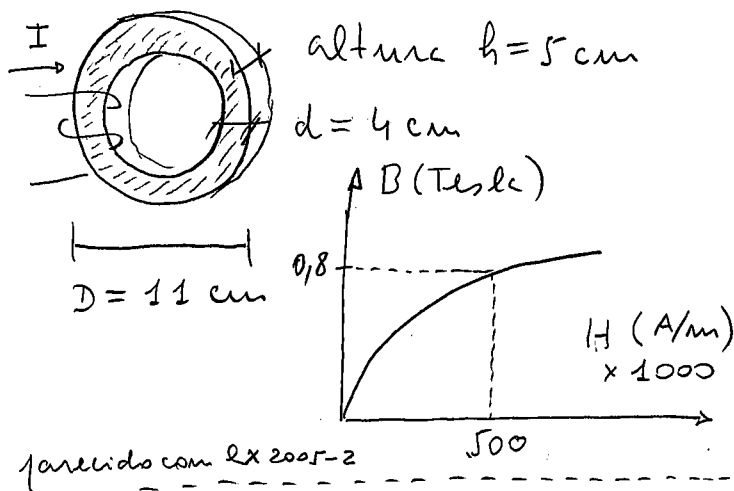 I
altura h = 5 cm
d = 4 cm
D = 11 cm
B (Tesla)
0,8
H (A/m)
× 1000
500
parecido com ex 2005-2